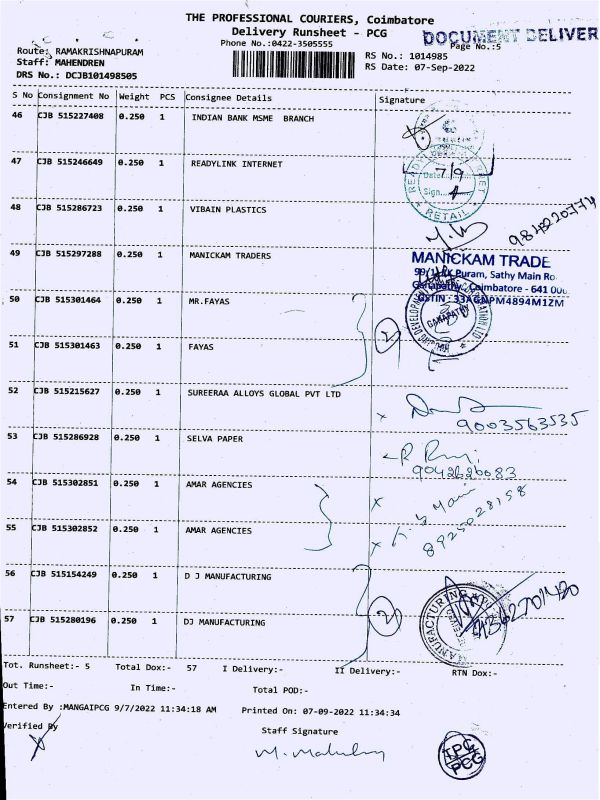 THE PROFESSIONAL COURIERS, Coimbatore
Delivery Runsheet - PCG
DOCUMENT DELIVER
Phone No.:0422-3505555
Page No.:5
Route: RAMAKRISHNAPURAM
RS No.: 1014985
Staff: MAHENDREN
RS Date: 07-Sep-2022
DRS No.: DCJB101498505
S No Consignment No Weight PCS Consignee Details Signature
46 CJB 515227408 0.250 1 INDIAN BANK MSME BRANCH
47 CJB 515246649 0.250 1 READYLINK INTERNET
Date: 7/9
Sign.
RETAIL
48 CJB 515286723 0.250 1 VIBAIN PLASTICS
9843220774
49 CJB 515297288 0.250 1 MANICKAM TRADERS
MANICKAM TRADE
Puram, Sathy Main Ro
Ganapathy, Coimbatore - 641 00
GSTIN : 33AGNPM4894M1ZM
50 CJB 515301464 0.250 1 MR.FAYAS
GANAPATHY
2
51 CJB 515301463 0.250 1 FAYAS
52 CJB 515215627 0.250 1 SUREERAA ALLOYS GLOBAL PVT LTD
9003563535
53 CJB 515286928 0.250 1 SELVA PAPER
9042626083
54 CJB 515302851 0.250 1 AMAR AGENCIES
8925028158
55 CJB 515302852 0.250 1 AMAR AGENCIES
56 CJB 515154249 0.250 1 D J MANUFACTURING
2
MANUFACTURING
57 CJB 515280196 0.250 1 DJ MANUFACTURING
Tot. Runsheet:- 5 Total Dox:- 57 I Delivery:- II Delivery:- RTN Dox:-
Out Time:- In Time:- Total POD:-
Entered By :MANGAIPCG 9/7/2022 11:34:18 AM Printed On: 07-09-2022 11:34:34
Verified By
Staff Signature
TPC
PCG